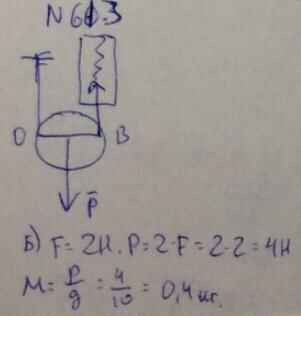 N 61.3
O B
P̄
Б) F = 2Н. P = 2·F = 2·2 = 4Н
M = P/g = 4/10 = 0,4 кг.